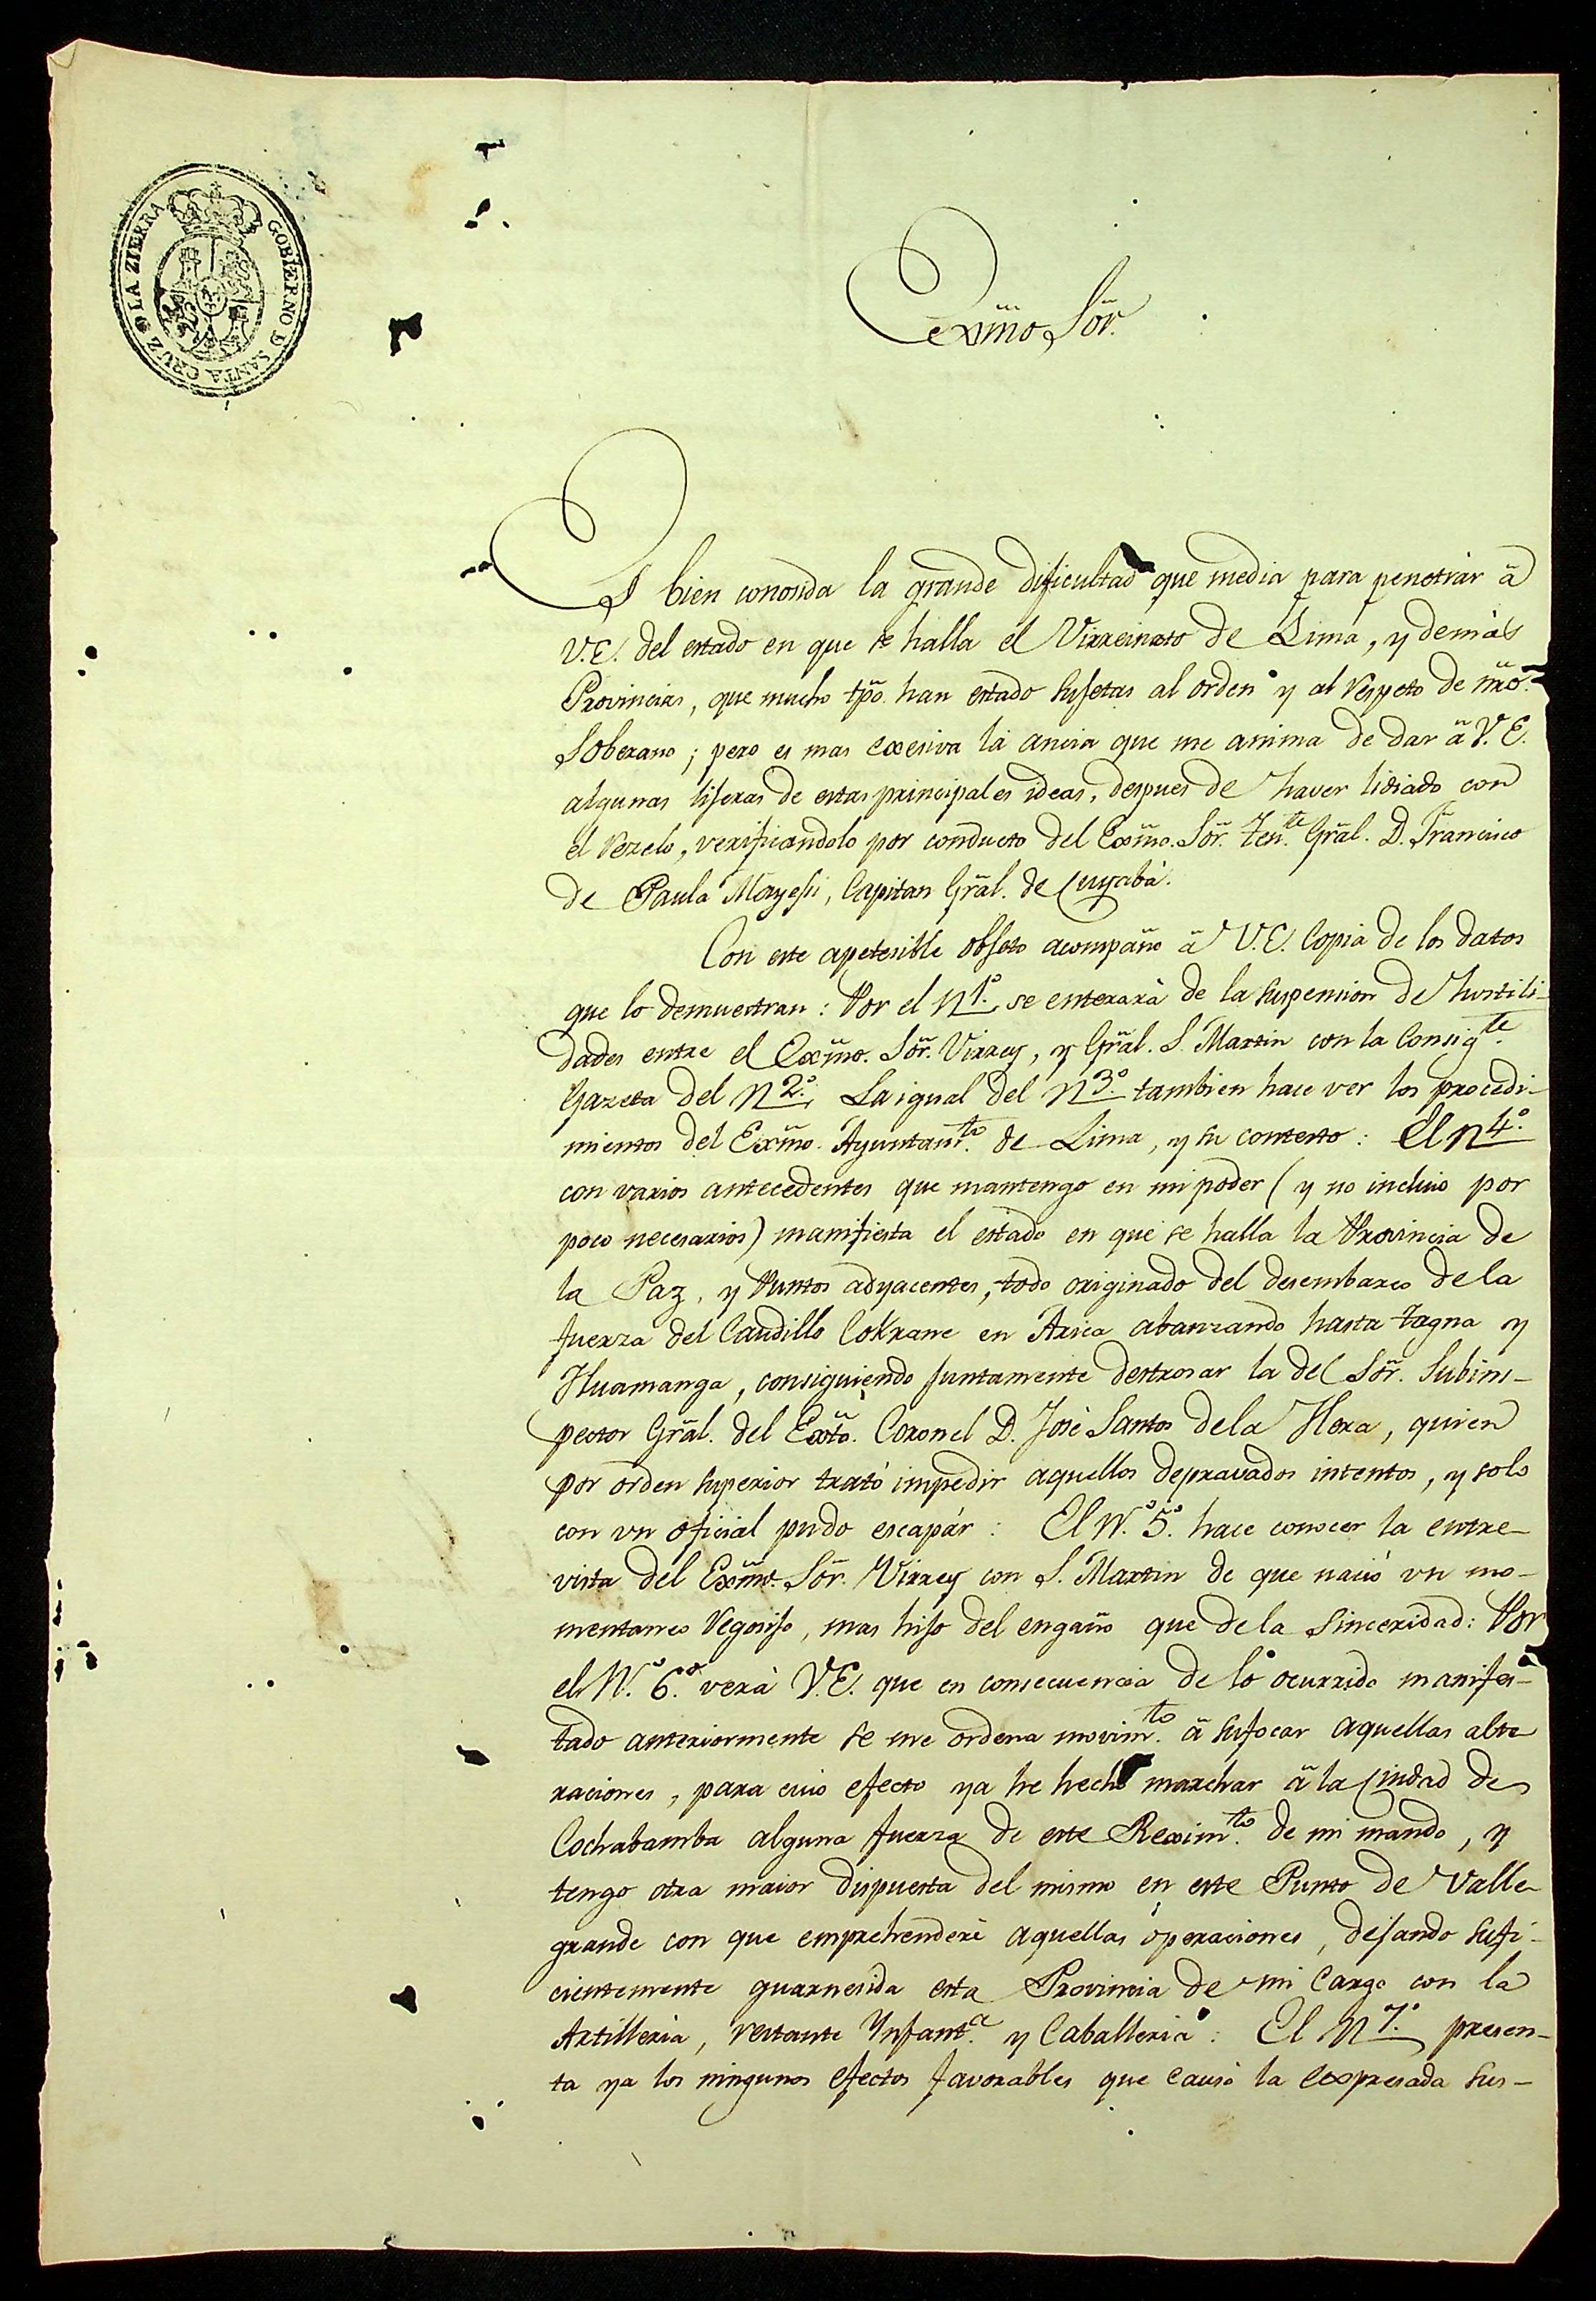 GOBIERNO D SANTA CRUZ D LA ZIERRA
Exm̃o Sõr.
Es bien conosida la grande dificultad que media para penetrár â
V.E. del estado en que se halla el Virreinato de Lima, y demàs
Provincias, que mucho tp̃o. han estado sujetas al orden y al respeto de nr̃o.
Soberano; pero es mas exesiva la ancia que me anima de dar â V.E.
algunas lijeras de estas principales ideas, despues de haver lidiado con
el rezelo, verificandolo por conducto del Exm̃o. Sõr. Ten.te Gr̃al. D. Francisco
de Paula Mayesi, Capitan Gr̃al. de Cuyabà.
Con este apetesible objeto acompaño â V.E. Copia de los datos
que lo demuestran: Por el N1.º se enterarà de la suspension de hostili-
dades entre el Exm̃o. Sõr. Virrey, y Gr̃al. S. Martin con la Consig.te
Gazeta del N2.º; La igual del N3.º tambien hace ver los procedi-
mientos del Exm̃o. Ayuntam.to de Lima, y su contesto: El N4.º
con varios antecedentes que mantengo en mi poder (y no incluio por
poco necesarios) manifiesta el estado en que se halla la Provincia de
la Paz, y Puntos adyacentes, todo originado del desembarco de la
fuerza del Caudillo Cokrane en Arica abanzando hasta Tagna y
Huamanga, consiguiendo juntamente destrosar la del Sõr. Subins-
pector Gr̃al. del Exto. Coronel D. Josè Santos de la Hera, quien
por orden superior tratò impedir aquellos depravados intentos, y solo
con un oficial pudo escapár: El N.º 5.º hace conocer la entre-
vista del Exm̃o. Sõr. Virrey con S. Martin de que naciò un mo-
mentaneo regosijo, mas hijo del engaño que de la sinceridad: Por
el N.º 6.º verà V.E. que en consecuencia de lo ocurrido manifes-
tado anteriormente se me ordena movim.to â sufocar aquellas alte
raciones, para cuio efecto ya he hecho marchar â la Ciudad de
Cochabamba alguna fuerza de este Rexim.to de mi mando, y
tengo otra maior dispuesta del mismo en este Punto de Valle
grande con que emprehenderè aquellas operaciones, dejando sufi-
cientemente guarnesida esta Provincia de mi Cargo con la
Artilleria, restante Ynfant.a y Caballeria: El N7.º presen-
ta ya los ningunos efectos favorables que causò la expresada sus-